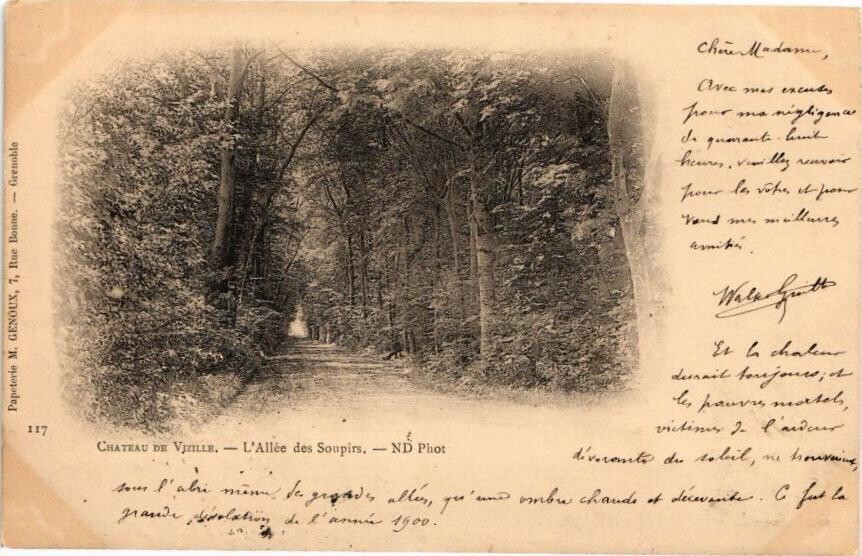 Chère Madame,
Avec mes excuses
pour ma négligence
de quarante-huit
heures, veuillez recevoir
pour les vôtres et pour
vous mes meilleures
amitiés.
Et la chaleur
durait toujours; et
les pauvres mortels,
victimes de l'ardeur
dévorante du soleil, ne trouvaient
sous l'abri même des grandes allées, qu'une ombre chaude et décevante. Ce fut la
grande désolation de l'année 1900.
Papeterie M. GENOUX, 7, Rue Bonne. — Grenoble
117
CHATEAU DE VIZILLE. — L'Allée des Soupirs. — ND Phot